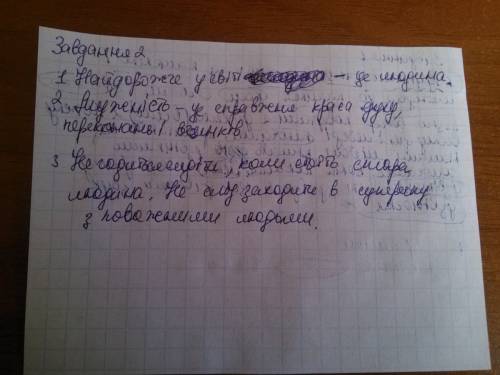 Завдання 2
1. Найдорожче у світі – це людина.
2. Мужність – це справжня краса духу,
переконань і вчинків.
3 Не годиться сидіти, коли стоїть стара
людина. Не слід заходити в суперечку
з поважними людьми.